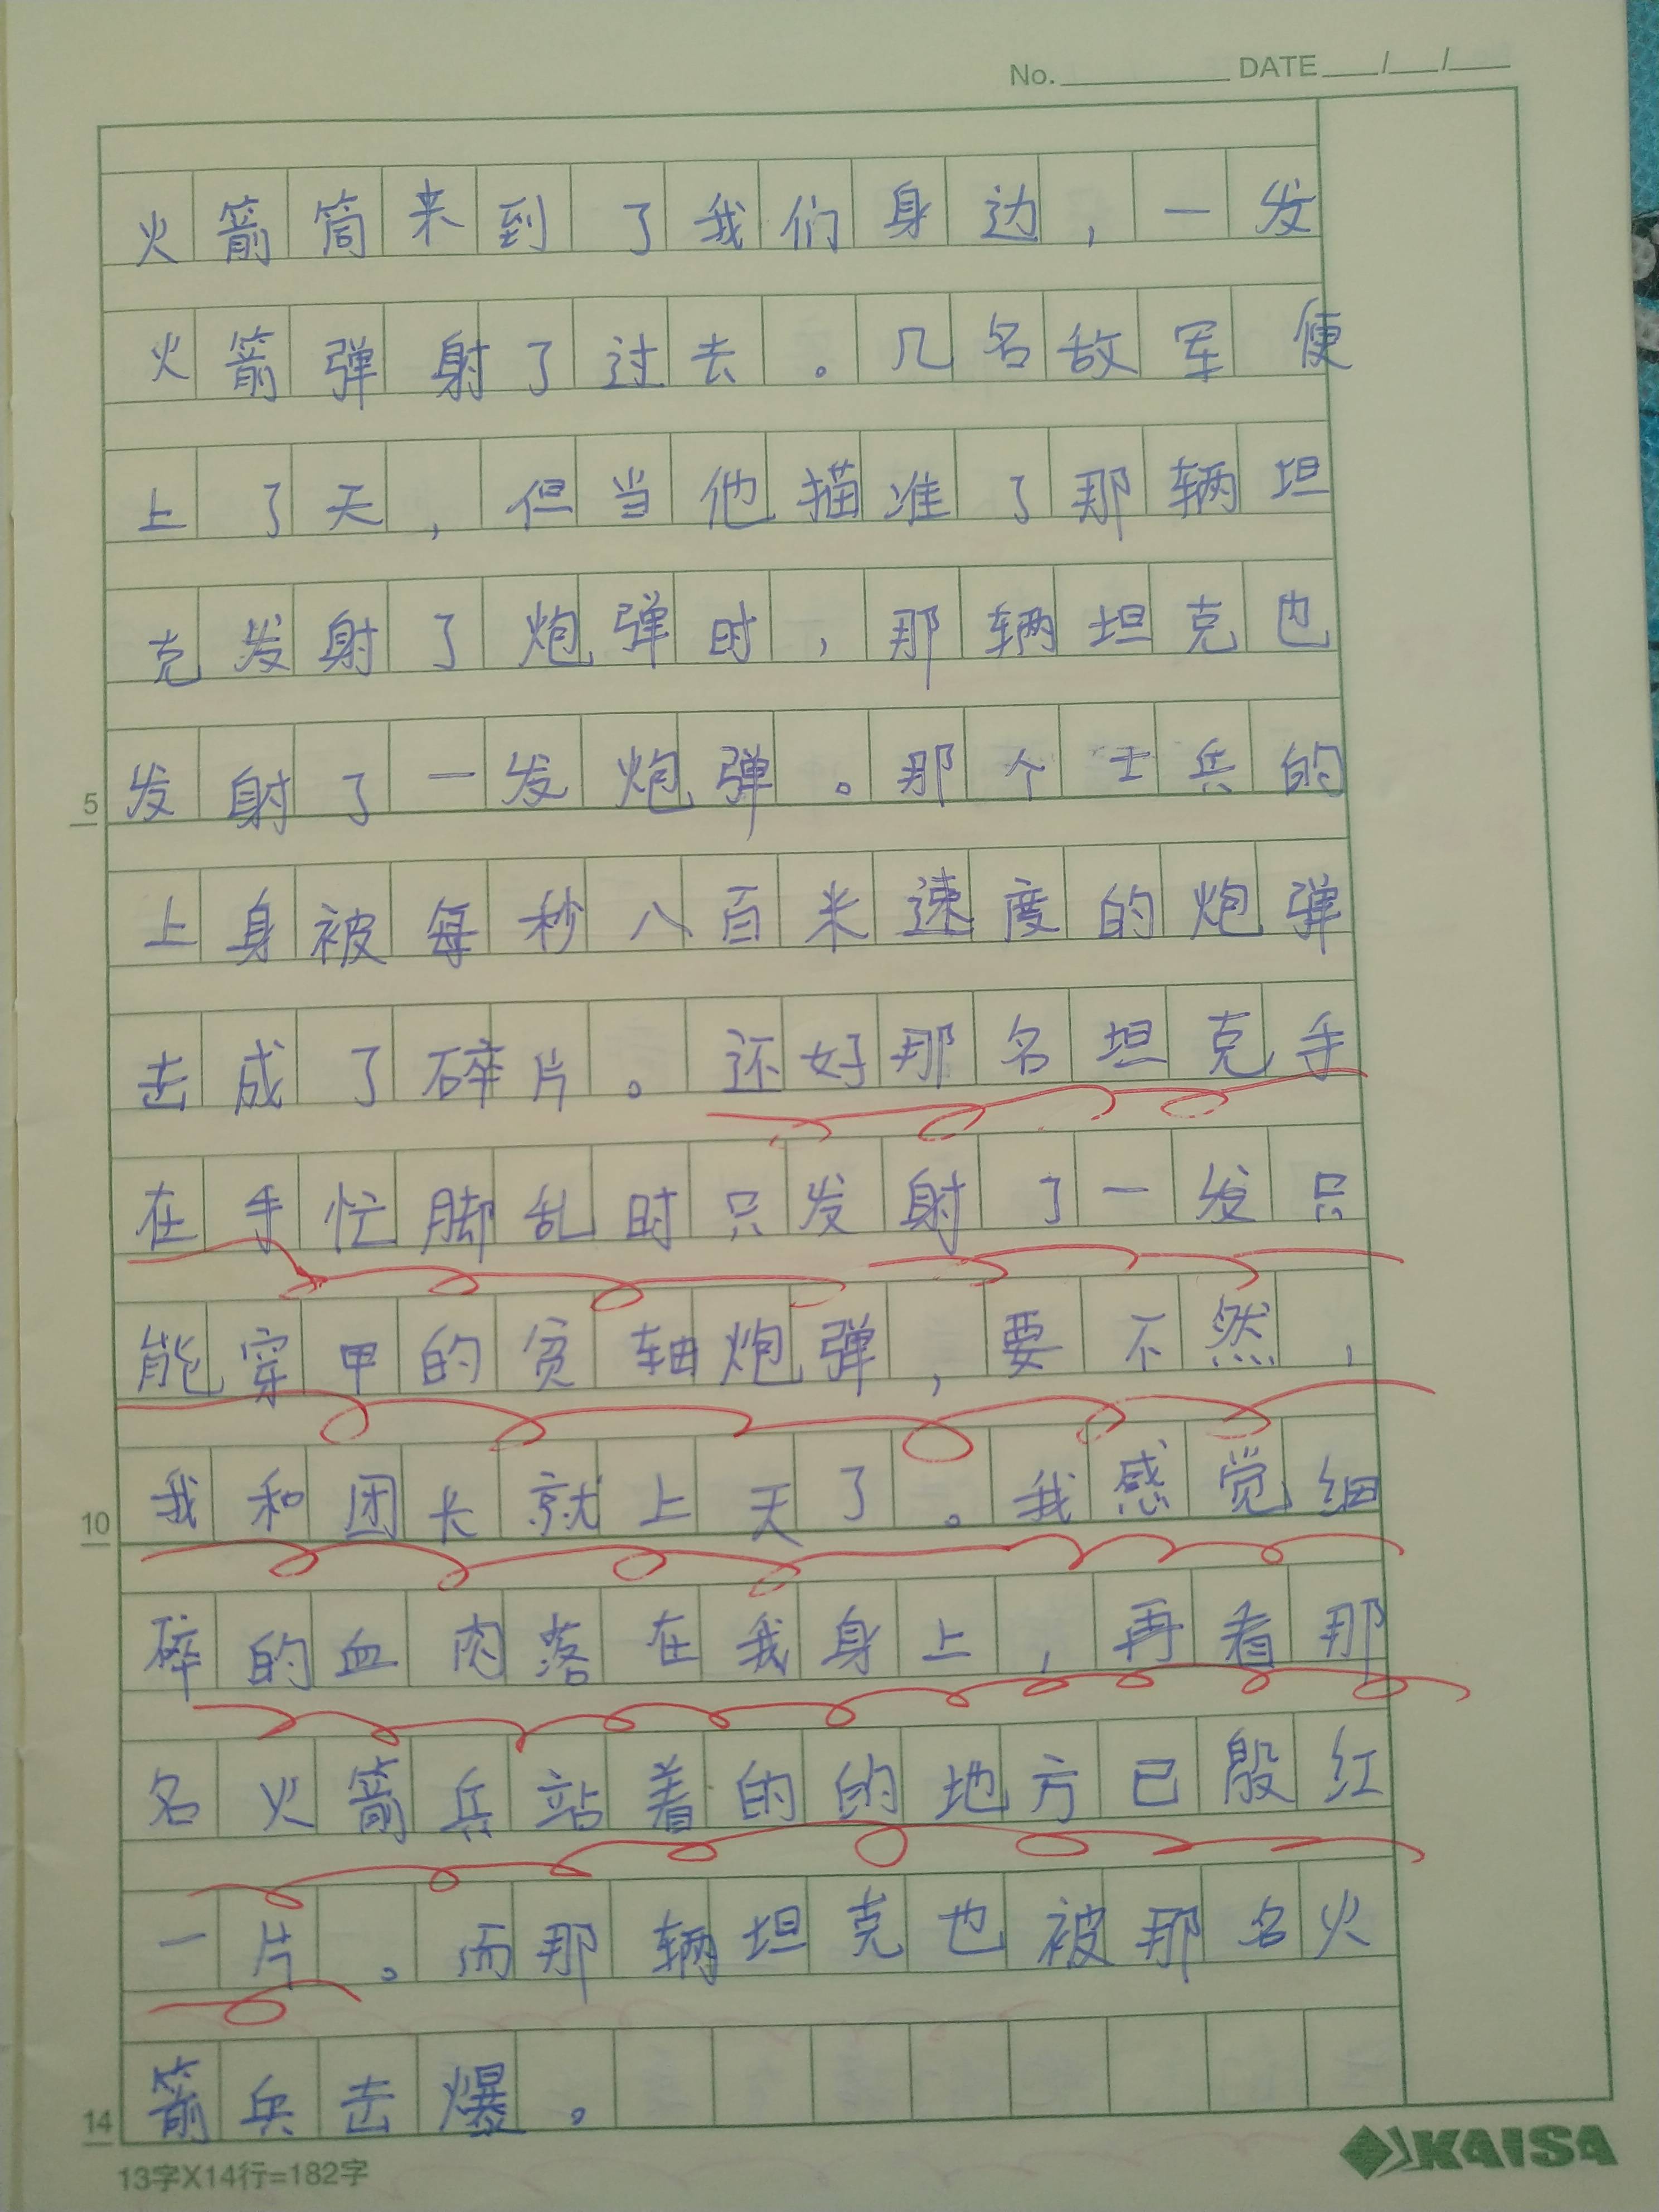 No. DATE / /
火箭筒来到了我们身边，一发
火箭弹射了过去。几名敌军便
上了天，但当他描准了那辆坦
克发射了炮弹时，那辆坦克也
5 发射了一发炮弹。那个士兵的
上身被每秒八百米速度的炮弹
击成了碎片。还好那名坦克手
在手忙脚乱时只发射了一发只
能穿甲的贫轴炮弹，要不然，
10 我和团长就上天了。我感觉细
碎的血肉落在我身上，再看那
名火箭兵站着的的地方已殷红
一片。而那辆坦克也被那名火
14 箭兵击爆。
13字X14行=182字
KAISA